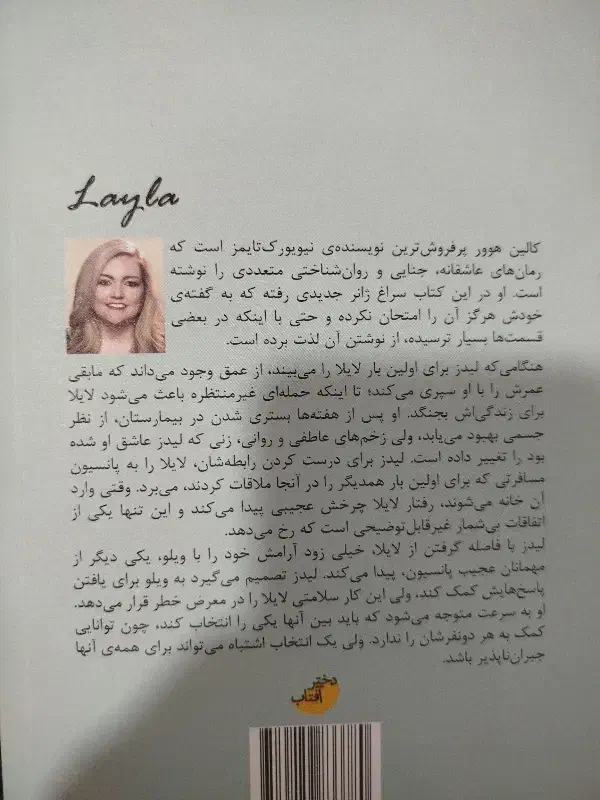 Layla
کالین هوور پرفروش‌ترین نویسنده‌ی نیویورک‌تایمز است که
رمان‌های عاشقانه، جنایی و روان‌شناختی متعددی را نوشته
است. او در این کتاب سراغ ژانر جدیدی رفته که به گفته‌ی
خودش هرگز آن را امتحان نکرده و حتی با اینکه در بعضی
قسمت‌ها بسیار ترسیده، از نوشتن آن لذت برده است.
هنگامی‌که لیدز برای اولین بار لایلا را می‌بیند، از عمق وجود می‌داند که مابقی
عمرش را با او سپری می‌کند؛ تا اینکه حمله‌ای غیرمنتظره باعث می‌شود لایلا
برای زندگی‌اش بجنگد. او پس از هفته‌ها بستری شدن در بیمارستان، از نظر
جسمی بهبود می‌یابد، ولی زخم‌های عاطفی و روانی، زنی که لیدز عاشق او شده
بود را تغییر داده است. لیدز برای درست کردن رابطه‌شان، لایلا را به پانسیون
مسافرتی که برای اولین بار همدیگر را در آنجا ملاقات کردند، می‌برد. وقتی وارد
آن خانه می‌شوند، رفتار لایلا چرخش عجیبی پیدا می‌کند و این تنها یکی از
اتفاقات بی‌شمار غیرقابل‌توضیحی است که رخ می‌دهد.
لیدز با فاصله گرفتن از لایلا، خیلی زود آرامش خود را با ویلو، یکی دیگر از
مهمانان عجیب پانسیون، پیدا می‌کند. لیدز تصمیم می‌گیرد به ویلو برای یافتن
پاسخ‌هایش کمک کند، ولی این کار سلامتی لایلا را در معرض خطر قرار می‌دهد.
او به سرعت متوجه می‌شود که باید بین آنها یکی را انتخاب کند، چون توانایی
کمک به هر دونفرشان را ندارد. ولی یک انتخاب اشتباه می‌تواند برای همه‌ی آنها
جبران‌ناپذیر باشد.
دختر
آفتاب